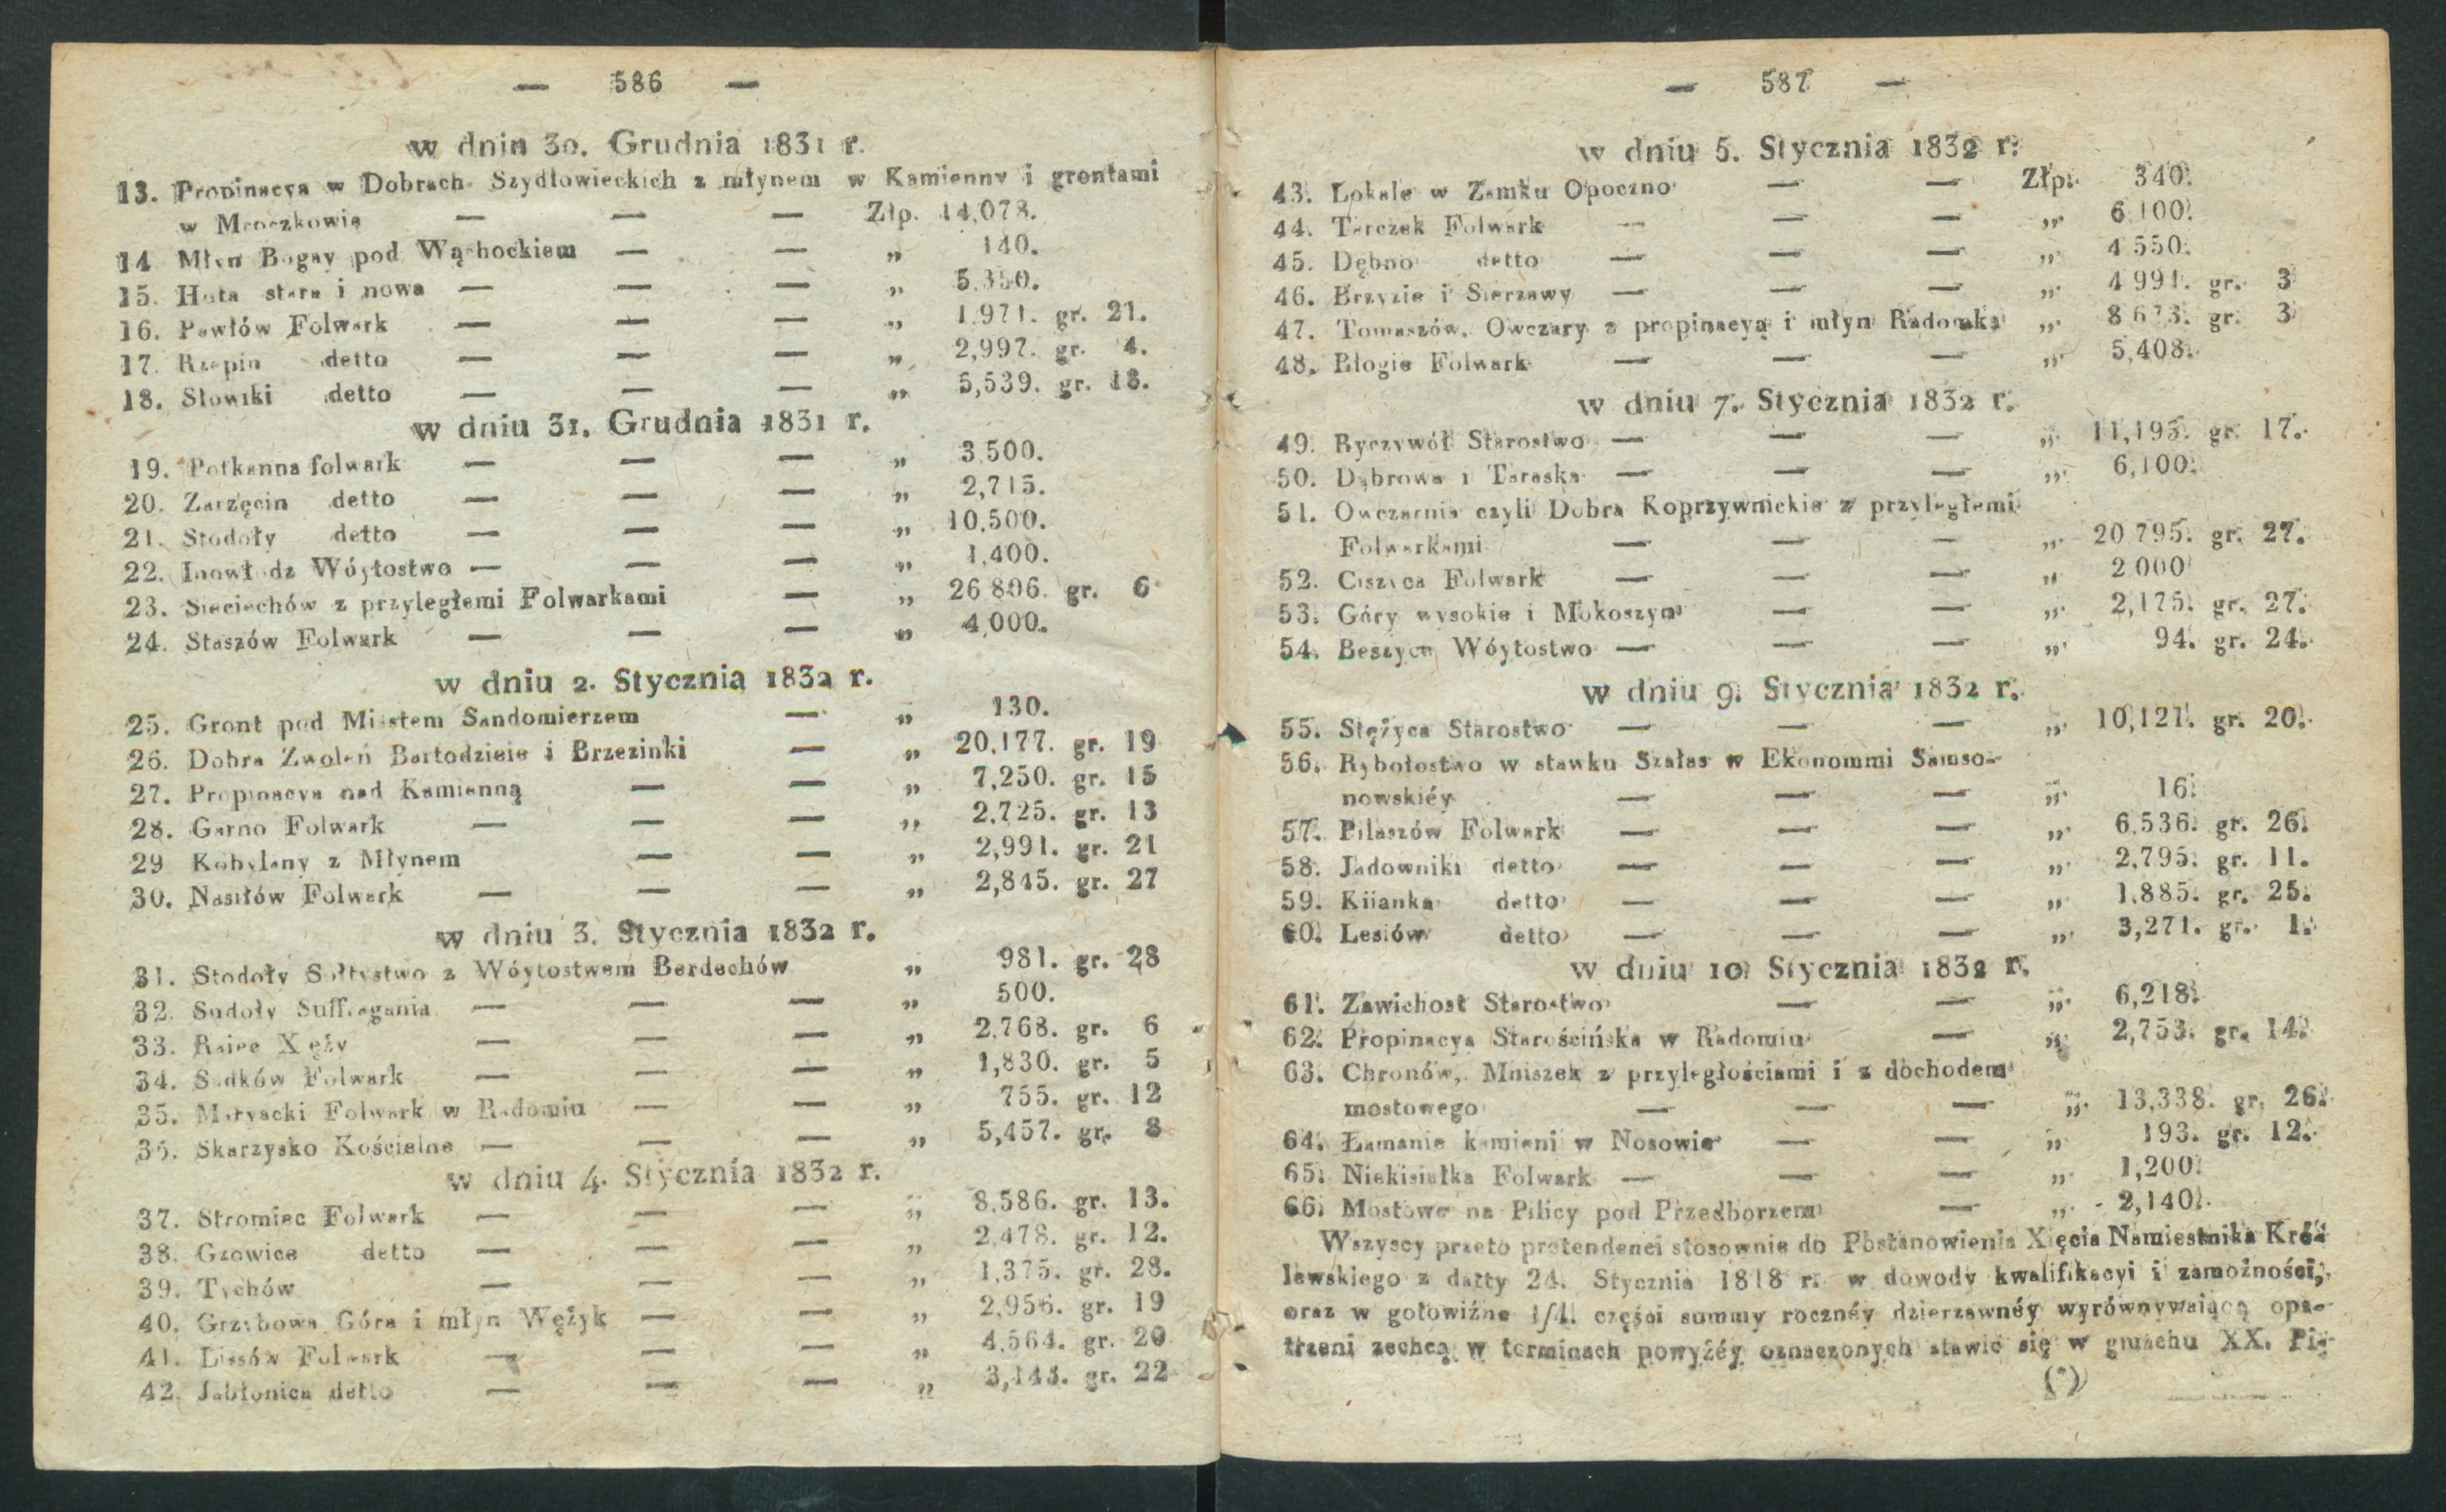 — 586 —
w dniu 30. Grudnia 1831 r.
13. Propinacya w Dobrach Szydłowieckich z młynem w Kamienny i grontami
w Mroczkowie — — — Złp. 14,078.
14 Młyn Bugay pod Wąchockiem — — „ 140.
15. Huta stara i nowa — — — „ 5,350.
16. Pawłów Folwark — — — „ 1,971. gr. 21.
17. Rzepin detto — — — „ 2,997. gr. 4.
18. Słowiki detto — — — „ 5,539. gr. 18.
w dniu 31. Grudnia 1831 r.
19. Potkanna folwark — — — „ 3,500.
20. Zarzęcin detto — — — „ 2,715.
21. Stodoły detto — — — „ 10,500.
22. Inowłodz Wóytostwo — — — „ 1,400.
23. Sieciechów z przyległemi Folwarkami — „ 26 806. gr. 6
24. Staszów Folwark — — — „ 4,000.
w dniu 2. Stycznia 1832 r.
25. Gront pod Miastem Sandomierzem — „ 130.
26. Dobra Zwoleń Bartodzieie i Brzezinki — „ 20,177. gr. 19
27. Propinacya nad Kamienną — — „ 7,250. gr. 15
28. Garno Folwark — — — „ 2,725. gr. 13
29 Kobylany z Młynem — — „ 2,991. gr. 21
30. Nasiłów Folwark — — — „ 2,845. gr. 27
w dniu 3. Stycznia 1832 r.
31. Stodoły Sołtystwo z Wóytostwem Berdechów „ 981. gr. 28
32. Sudoły Suffragania — — — „ 500.
33. Raiec Xięży — — — „ 2,768. gr. 6
34. Sadków Folwark — — — „ 1,830. gr. 5
35. Maryacki Folwark w Radomiu — — „ 755. gr. 12
36. Skarzysko Kościelne — — — „ 5,457. gr. 8
w dniu 4. Stycznia 1832 r.
37. Stromiec Folwark — — — „ 8,586. gr. 13.
38. Gzowice detto — — — „ 2,478. gr. 12.
39. Tychów — — — „ 1,375. gr. 28.
40. Grzybowa Góra i młyn Wężyk — — „ 2,956. gr. 19
41. Lissów Folwark — — — „ 4,564. gr. 20
42. Jabłonica detto — — — „ 3,143. gr. 22
— 587 —
w dniu 5. Stycznia 1832 r.
43. Lokale w Zamku Opoczno — — Złp. 340.
44. Tarczek Folwark — — — „ 6,100.
45. Dębno detto — — — „ 4 550.
46. Brzyzie i Sierzawy — — — „ 4 991. gr. 3
47. Tomaszów, Owczary z propinacyą i młyn Radomka „ 8 673. gr. 3
48. Błogie Folwark — — — „ 5,408.
w dniu 7. Stycznia 1832 r.
49. Ryczywół Starostwo — — — „ 11,195. gr. 17.
50. Dąbrowa i Taraska — — — „ 6,100.
51. Owczarnia czyli Dobra Koprzywnickie z przyległemi
Folwarkami — — — „ 20 795. gr. 27.
52. Ciszyca Folwark — — — „ 2 000
53. Góry wysokie i Mokoszyn — — „ 2,175. gr. 27.
54. Beszyce Wóytostwo — — — „ 94. gr. 24.
w dniu 9. Stycznia 1832 r.
55. Stężyca Starostwo — — — „ 10,121. gr. 20.
56. Rybołostwo w stawku Szałas w Ekonommi Samso-
nowskiéy — — — „ 16.
57. Pilaszów Folwark — — — „ 6,536. gr. 26.
58. Jadowniki detto — — — „ 2,795. gr. 11.
59. Kiianka detto — — — „ 1,885. gr. 25.
60. Lesiów detto — — — „ 3,271. gr. 1.
w dniu 10. Stycznia 1832 r.
61. Zawichost Starostwo — — „ 6,218.
62. Propinacya Starościńska w Radomiu — „ 2,753. gr. 14.
63. Chronów, Mniszek z przyległościami i z dochodem
mostowego — — — „ 13,338. gr. 26.
64. Łamanie kamieni w Nosowie — — „ 193. gr. 12.
65. Niekisiałka Folwark — — — „ 1,200.
66. Mostowe na Pilicy pod Przedborzem — „ 2,140.
Wszyscy przeto pretendenci stosownie do Postanowienia Xięcia Namiestnika Kró-
lewskiego z datty 24. Stycznia 1818 r. w dowody kwalifikacyi i zamożności,
oraz w gotowiźne 1/4. części summy rocznéy dzierzawnéy wyrównywaiącą opa-
trzeni zechcą w terminach powyźéy oznaczonych stawić się w gmachu XX. Pi-
(*)